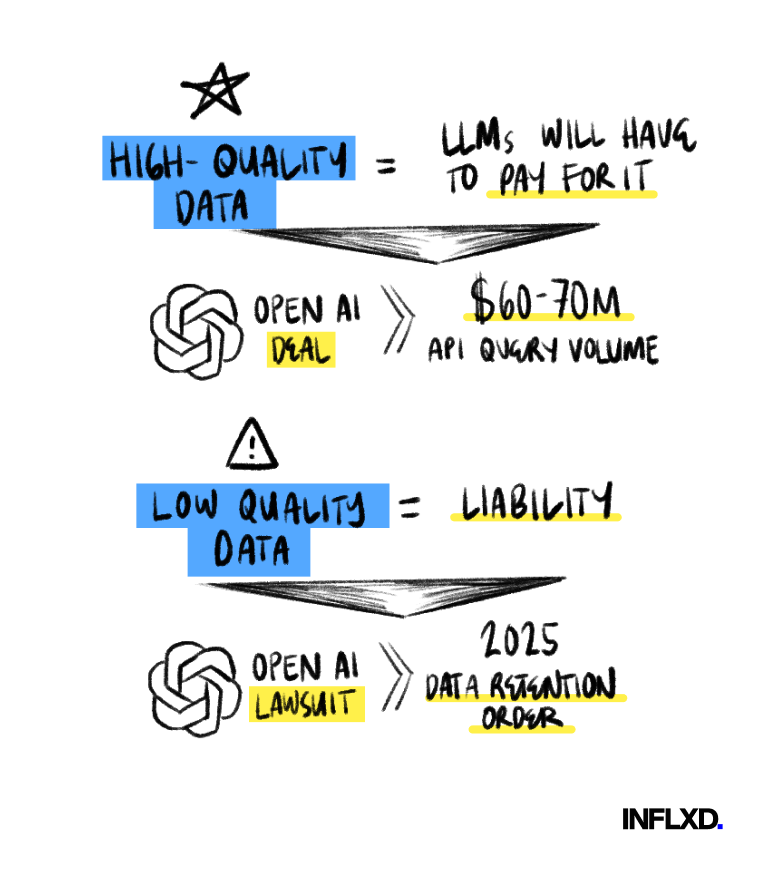 HIGH-QUALITY
DATA
=
LLMs WILL HAVE
TO PAY FOR IT
OPEN AI
DEAL
$60-70M
API QUERY VOLUME
LOW QUALITY
DATA
=
LIABILITY
OPEN AI
LAWSUIT
2025
DATA RETENTION
ORDER
INFLXD.